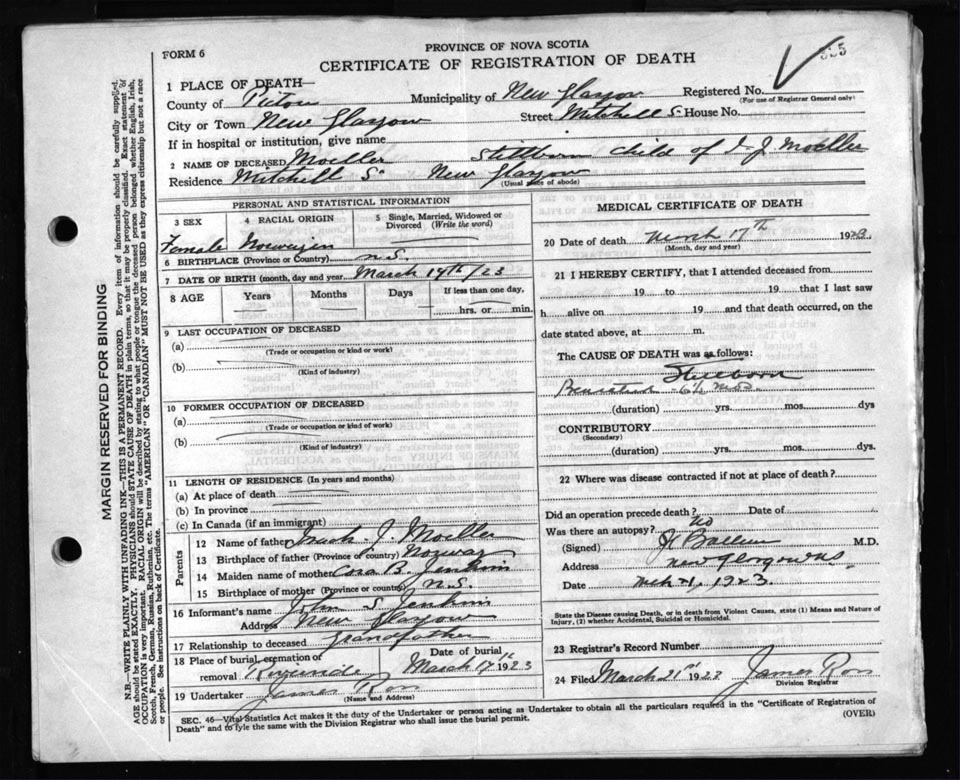 FORM 6
PROVINCE OF NOVA SCOTIA
CERTIFICATE OF REGISTRATION OF DEATH
1 PLACE OF DEATH—
County of Pictou Municipality of New Glasgow Registered No.
(For use of Registrar General only)
City or Town New Glasgow Street Mitchell S House No.
If in hospital or institution, give name
2 NAME OF DECEASED Moeller Stillborn child of J. Moeller
Residence Mitchell S New Glasgow
(Usual place of abode)
PERSONAL AND STATISTICAL INFORMATION
3 SEX 4 RACIAL ORIGIN 5 Single, Married, Widowed or Divorced (Write the word)
Female
6 BIRTHPLACE (Province or Country) N.S.
7 DATE OF BIRTH (month, day and year) March /23
8 AGE Years Months Days If less than one day,
hrs. or min.
9 LAST OCCUPATION OF DECEASED
(a)
(Trade or occupation or kind or work)
(b)
(Kind of industry)
10 FORMER OCCUPATION OF DECEASED
(a)
(Trade or occupation or kind or work)
(b)
(Kind of industry)
11 LENGTH OF RESIDENCE (In years and months)
(a) At place of death
(b) In province
(c) In Canada (if an immigrant)
Parents
12 Name of father J. Moeller
13 Birthplace of father (Province or country) Norway
14 Maiden name of mother Cora B. Jenkins
15 Birthplace of mother (Province or country) N.S.
16 Informant's name John S. Jenkins
Address New Glasgow
17 Relationship to deceased Grandfather
18 Place of burial, cremation or removal Riverside Date of burial March 17th 1923
19 Undertaker James Ross
(Name and Address)
MEDICAL CERTIFICATE OF DEATH
20 Date of death March 17th 1923
(Month, day and year)
21 I HEREBY CERTIFY, that I attended deceased from
19 to 19 that I last saw
h alive on 19 and that death occurred, on
date stated above, at m.
The CAUSE OF DEATH was as follows:
Stillborn
6½ mos.
(duration) yrs. mos. dys
CONTRIBUTORY
(Secondary)
(duration) yrs. mos. dys.
22 Where was disease contracted if not at place of death?
Did an operation precede death? Date of
Was there an autopsy? No
(Signed) M.D.
Address New Glasgow N.S.
Date 1923.
State the Disease causing Death, or in death from Violent Causes, state (1) Means and Nature of
Injury, (2) whether Accidental, Suicidal or Homicidal.
23 Registrar's Record Number
24 Filed March 21st 192 James Ross
Division Registrar
SEC. 46—Vital Statistics Act makes it the duty of the Undertaker or person acting as Undertaker to obtain all the particulars required in the "Certificate of Registration of
Death" and to file the same with the Division Registrar who shall issue the burial permit.
(OVER)
MARGIN RESERVED FOR BINDING
N.B.—WRITE PLAINLY WITH UNFADING INK—THIS IS A PERMANENT RECORD. Every item of information should be carefully supplied.
AGE should be stated EXACTLY. PHYSICIANS should STATE CAUSE OF DEATH in plain terms, so that it may be properly classified. Exact statement of
OCCUPATION is very important. RACIAL ORIGIN will be described by stating to what people or tongue the deceased person belonged whether English, Irish,
Scotch, French, German, Russian, Ruthenian, etc. The terms "AMERICAN" OR "CANADIAN" MUST NOT BE USED as they express citizenship but not a race
or people. See instructions on back of Certificate.